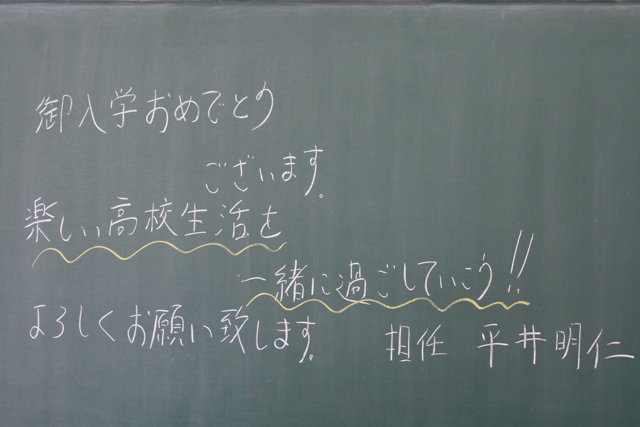 御入学おめでとう
ございます。
楽しい高校生活を
一緒に過ごしていこう!!
よろしくお願い致します。
担任 平井明仁